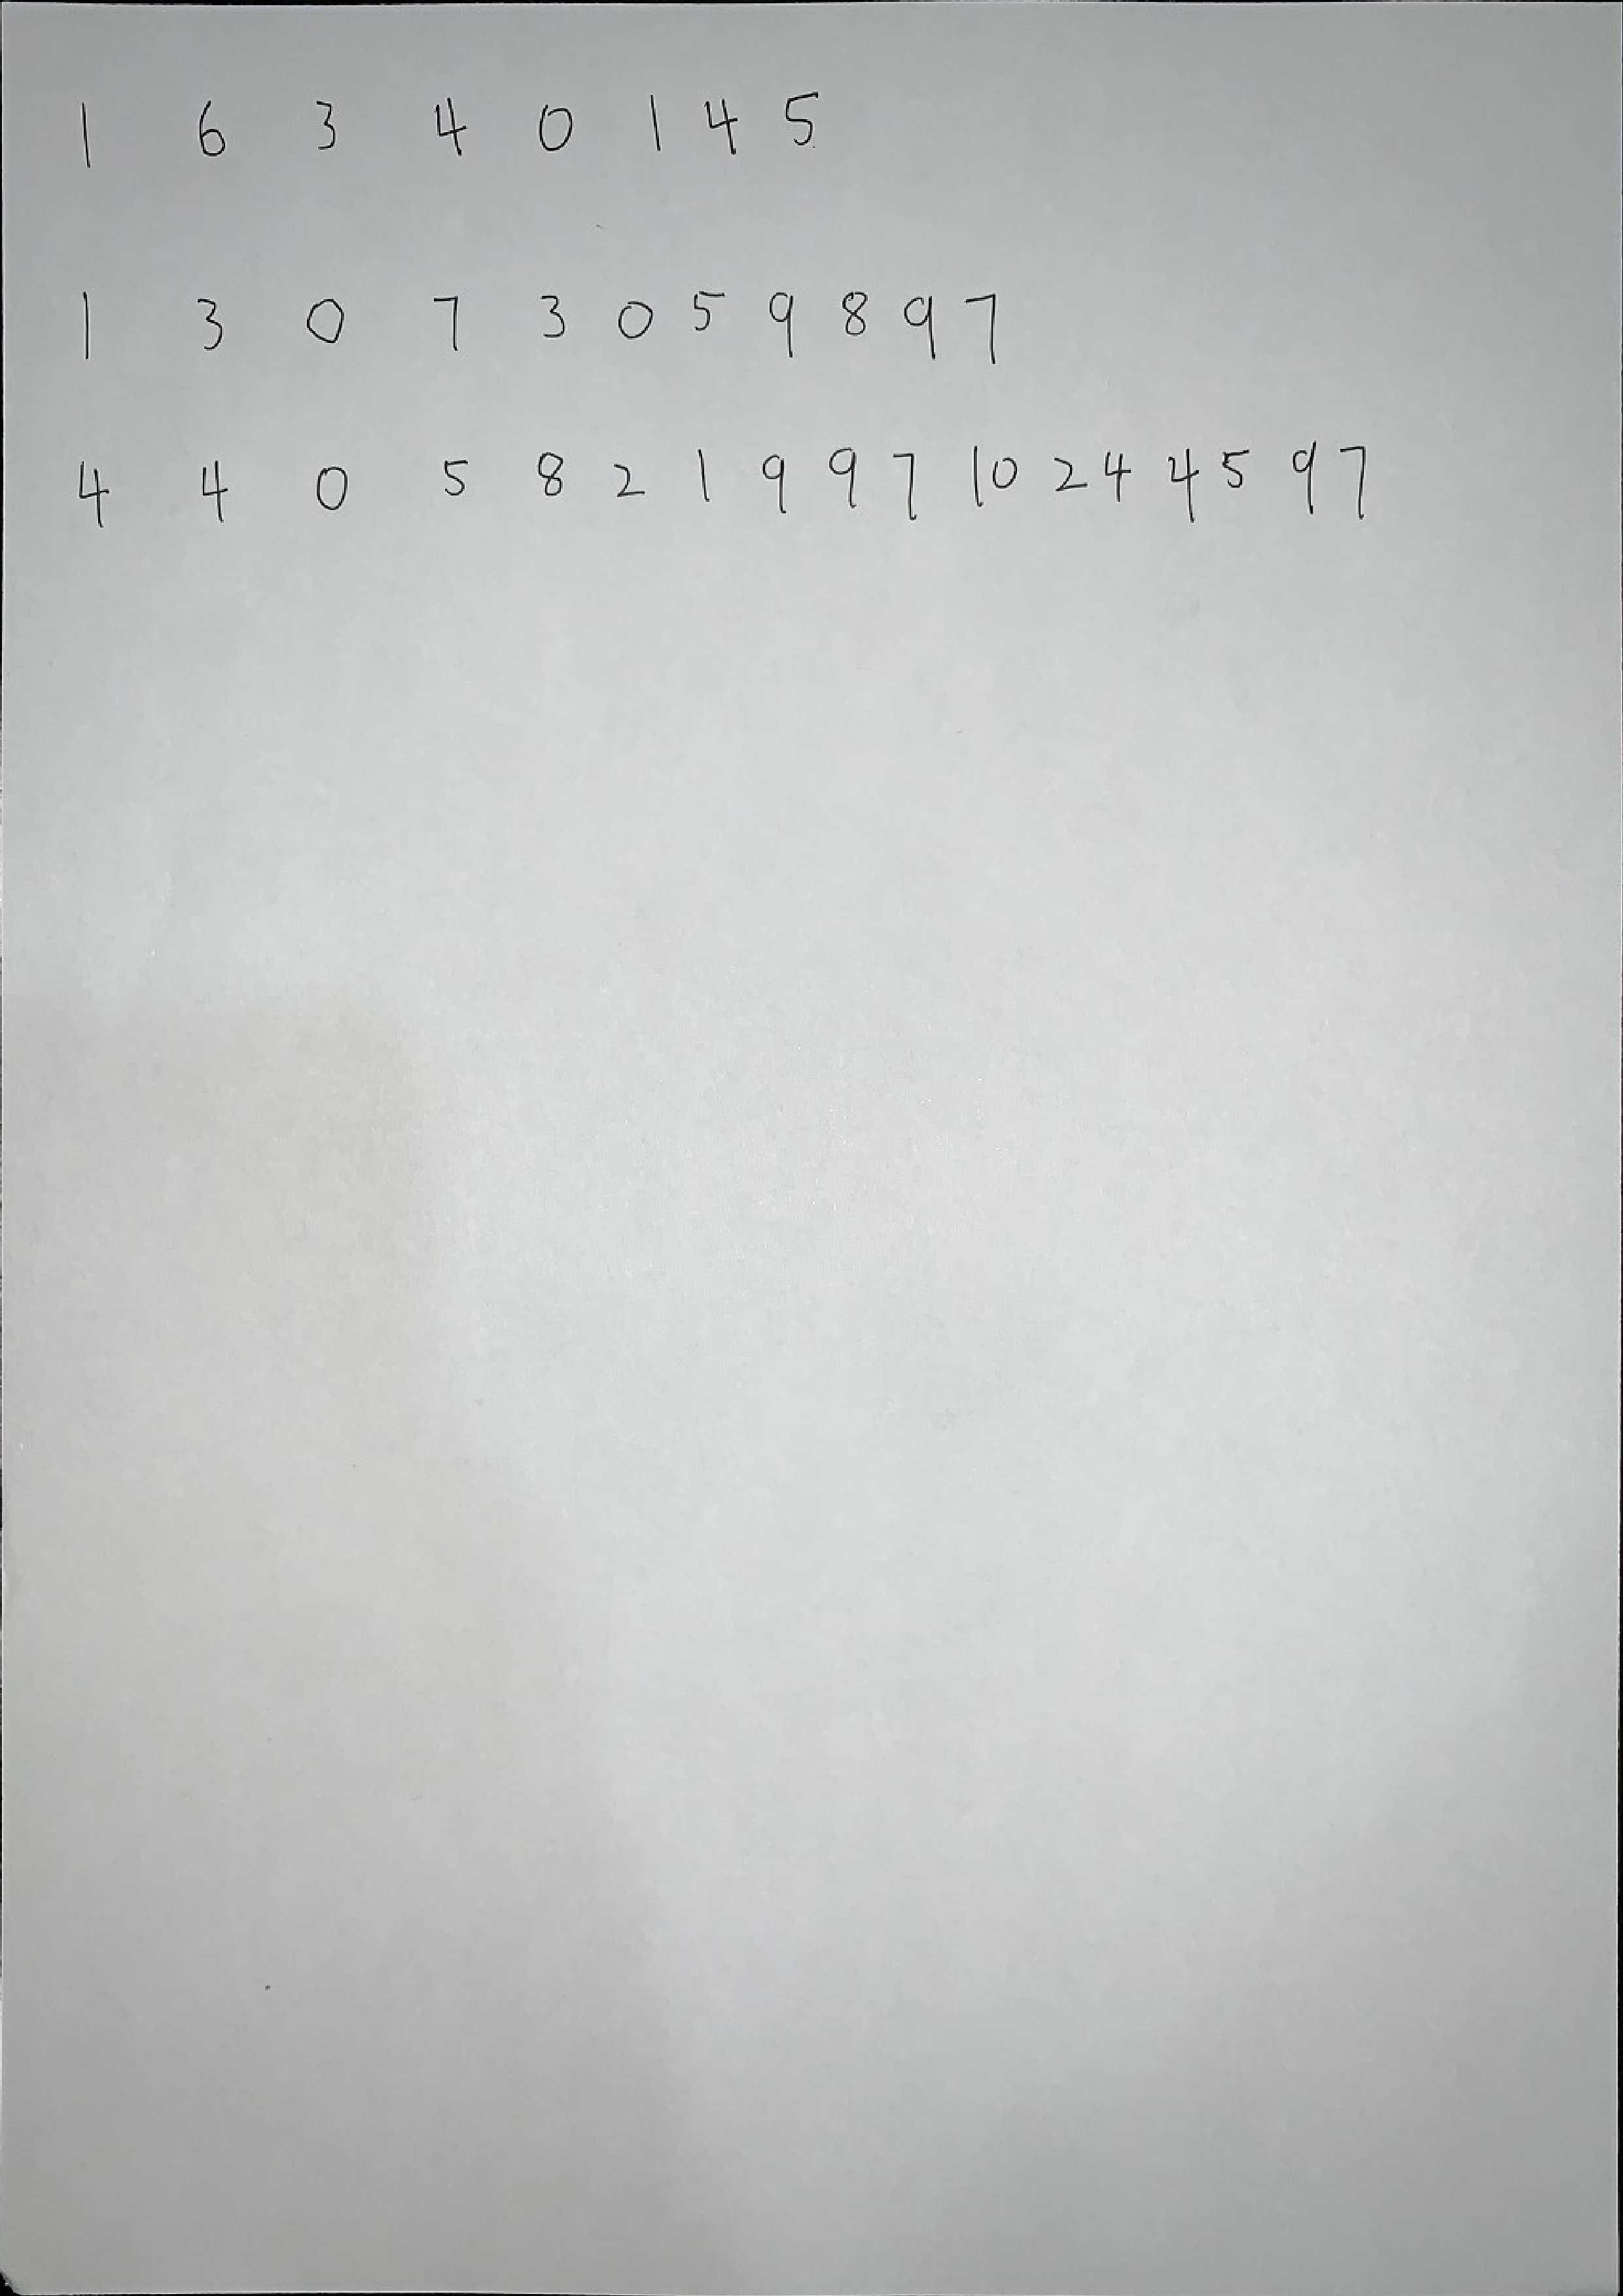 1 6 3 4 0 1 4 5
1 3 0 7 3 0 5 9 8 9 7
4 4 0 5 8 2 1 9 9 7 10 2 4 4 5 9 7